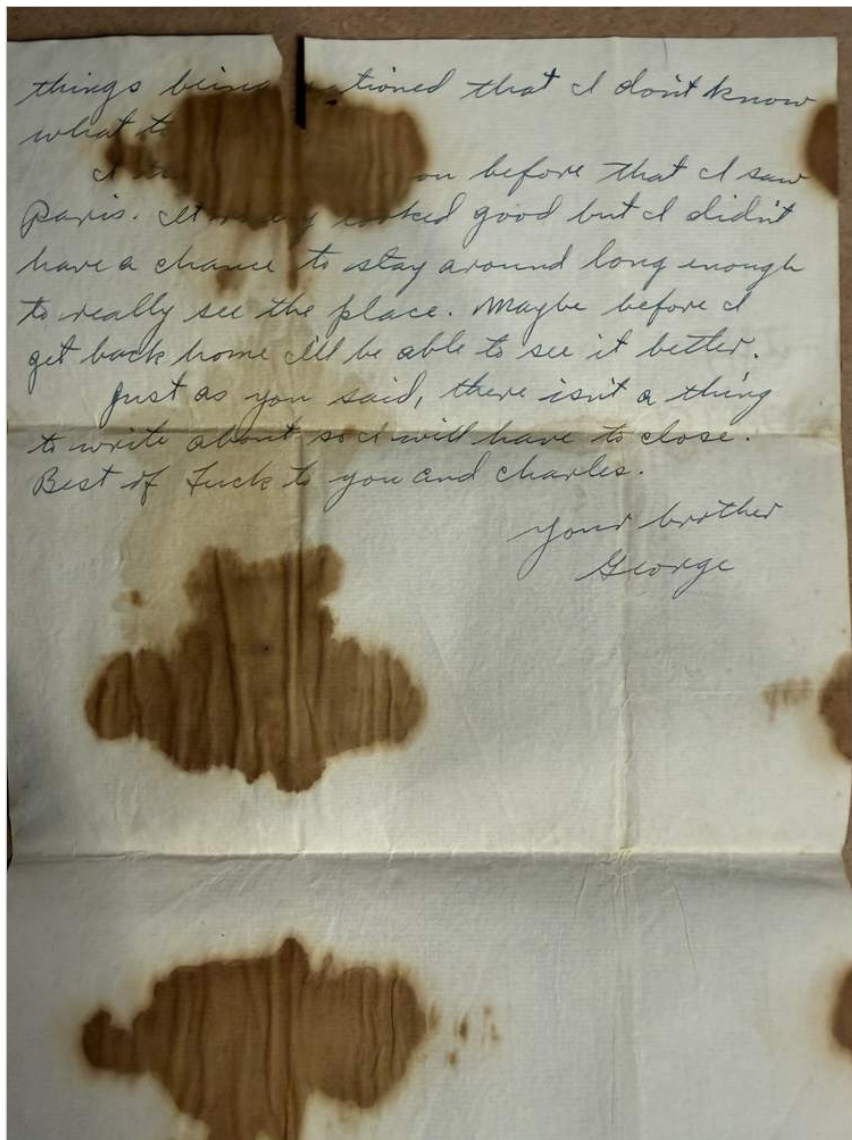 things being rationed that I don't know
what to
I before that I saw
Paris. It looked good but I didn't
have a chance to stay around long enough
to really see the place. Maybe before I
get back home I'll be able to see it better.
Just as you said, there isn't a thing
to write about so I will have to close.
Best of Luck to you and Charles.
Your brother
George